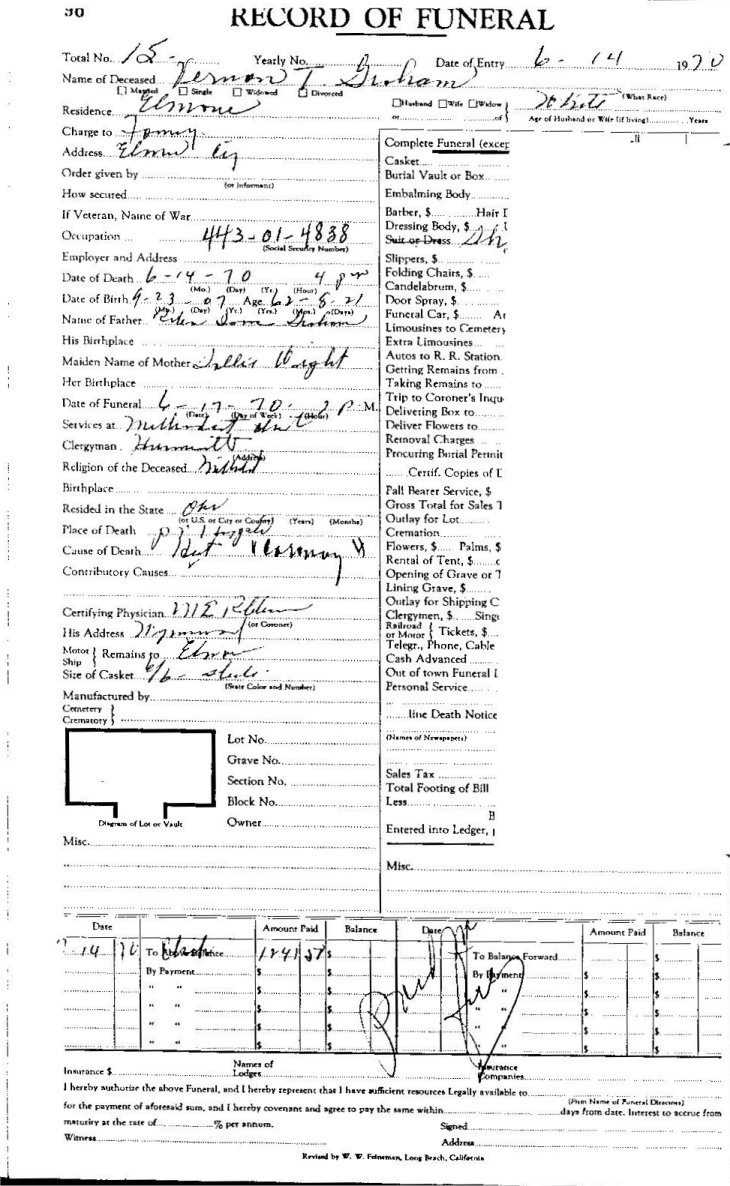 50
RECORD OF FUNERAL
Total No. 15 - Yearly No. Date of Entry 6 - 14 1970
Name of Deceased Vernon T. Graham
☐ Married ☐ Single ☐ Widowed ☐ Divorced
Residence
☐ Husband ☐ Wife ☐ Widow White (What Race)
or of Age of Husband or Wife (if living) Years
Charge to Family
Address
Order given by
(or Informant)
How secured
If Veteran, Name of War
Occupation 443-01-4838
(Social Security Number)
Employer and Address
Date of Death 6-14-70 4 pm
(Mo.) (Day) (Yr.) (Hour)
Date of Birth 9-23-07 Age 62-8-21
(Mo.) (Day) (Yr.) (Yrs.) (Mos.) (Days)
Name of Father Graham
His Birthplace
Maiden Name of Mother Wright
Her Birthplace
Date of Funeral 6-17-70 2 P.M.
(Date) (Day of Week) (Hour)
Services at Methodist
Clergyman
(Address)
Religion of the Deceased
Birthplace
Resided in the State
(or U.S. or City or County) (Years) (Months)
Place of Death
Cause of Death
Contributory Causes
Certifying Physician
(or Coroner)
His Address
Motor Ship } Remains to
Size of Casket 6/6
(State Color and Number)
Manufactured by
Cemetery
Crematory }
Lot No.
Grave No.
Section No.
Block No.
Owner
Diagram of Lot or Vault
Misc.
Complete Funeral (excep
Casket
Burial Vault or Box
Embalming Body
Barber, $ Hair D
Dressing Body, $
Suit or Dress
Slippers, $
Folding Chairs, $
Candelabrum, $
Door Spray, $
Funeral Car, $ Ar
Limousines to Cemetery
Extra Limousines
Autos to R. R. Station
Getting Remains from
Taking Remains to
Trip to Coroner's Inqu
Delivering Box to
Deliver Flowers to
Removal Charges
Procuring Burial Permit
Certif. Copies of D
Pall Bearer Service, $
Gross Total for Sales T
Outlay for Lot
Cremation
Flowers, $ Palms, $
Rental of Tent, $
Opening of Grave or T
Lining Grave, $
Outlay for Shipping C
Clergymen, $ Singe
Railroad or Motor { Tickets, $
Telegr., Phone, Cable
Cash Advanced
Out of town Funeral D
Personal Service
line Death Notice
(Names of Newspapers)
Sales Tax
Total Footing of Bill
Less
B
Entered into Ledger,
Misc.
Date Amount Paid Balance Date Amount Paid Balance
14 70 To Above Balance 1841 57 $ To Balance Forward $
By Payment $ $ By Payment $ $
" " $ $ " " $ $
" " $ $ " " $ $
" " $ $ " " $ $
" " $ $ " " $ $
Paid
Insurance $ Names of Lodges Insurance Companies
I hereby authorize the above Funeral, and I hereby represent that I have sufficient resources Legally available to
(Firm Name of Funeral Directors)
for the payment of aforesaid sum, and I hereby covenant and agree to pay the same within days from date. Interest to accrue from
maturity at the rate of % per annum. Signed
Witness Address
Revised by W. W. Feineman, Long Beach, California